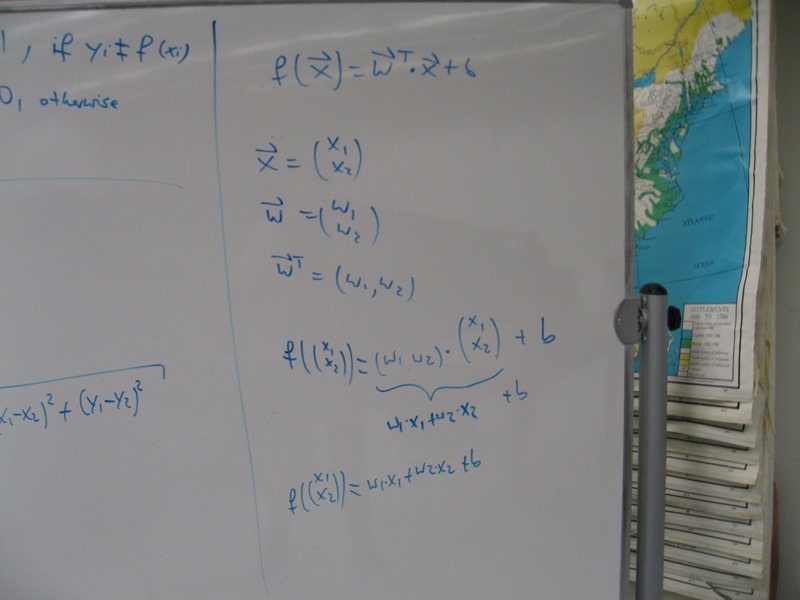 1, if yi ≠ f(xi)
0, otherwise
x1-x2)² + (y1-y2)²
f(x⃗) = w⃗ᵀ·x⃗ + b
x⃗ = (x1 x2)
w⃗ = (w1 w2)
w⃗ᵀ = (w1, w2)
f((x1 x2)) = (w1 w2)·(x1 x2) + b
w1·x1+w2·x2 +b
f((x1 x2)) = w1·x1+w2·x2 +b
ATLANTIC
OCEAN
SETTLEMENTS
TO 1700